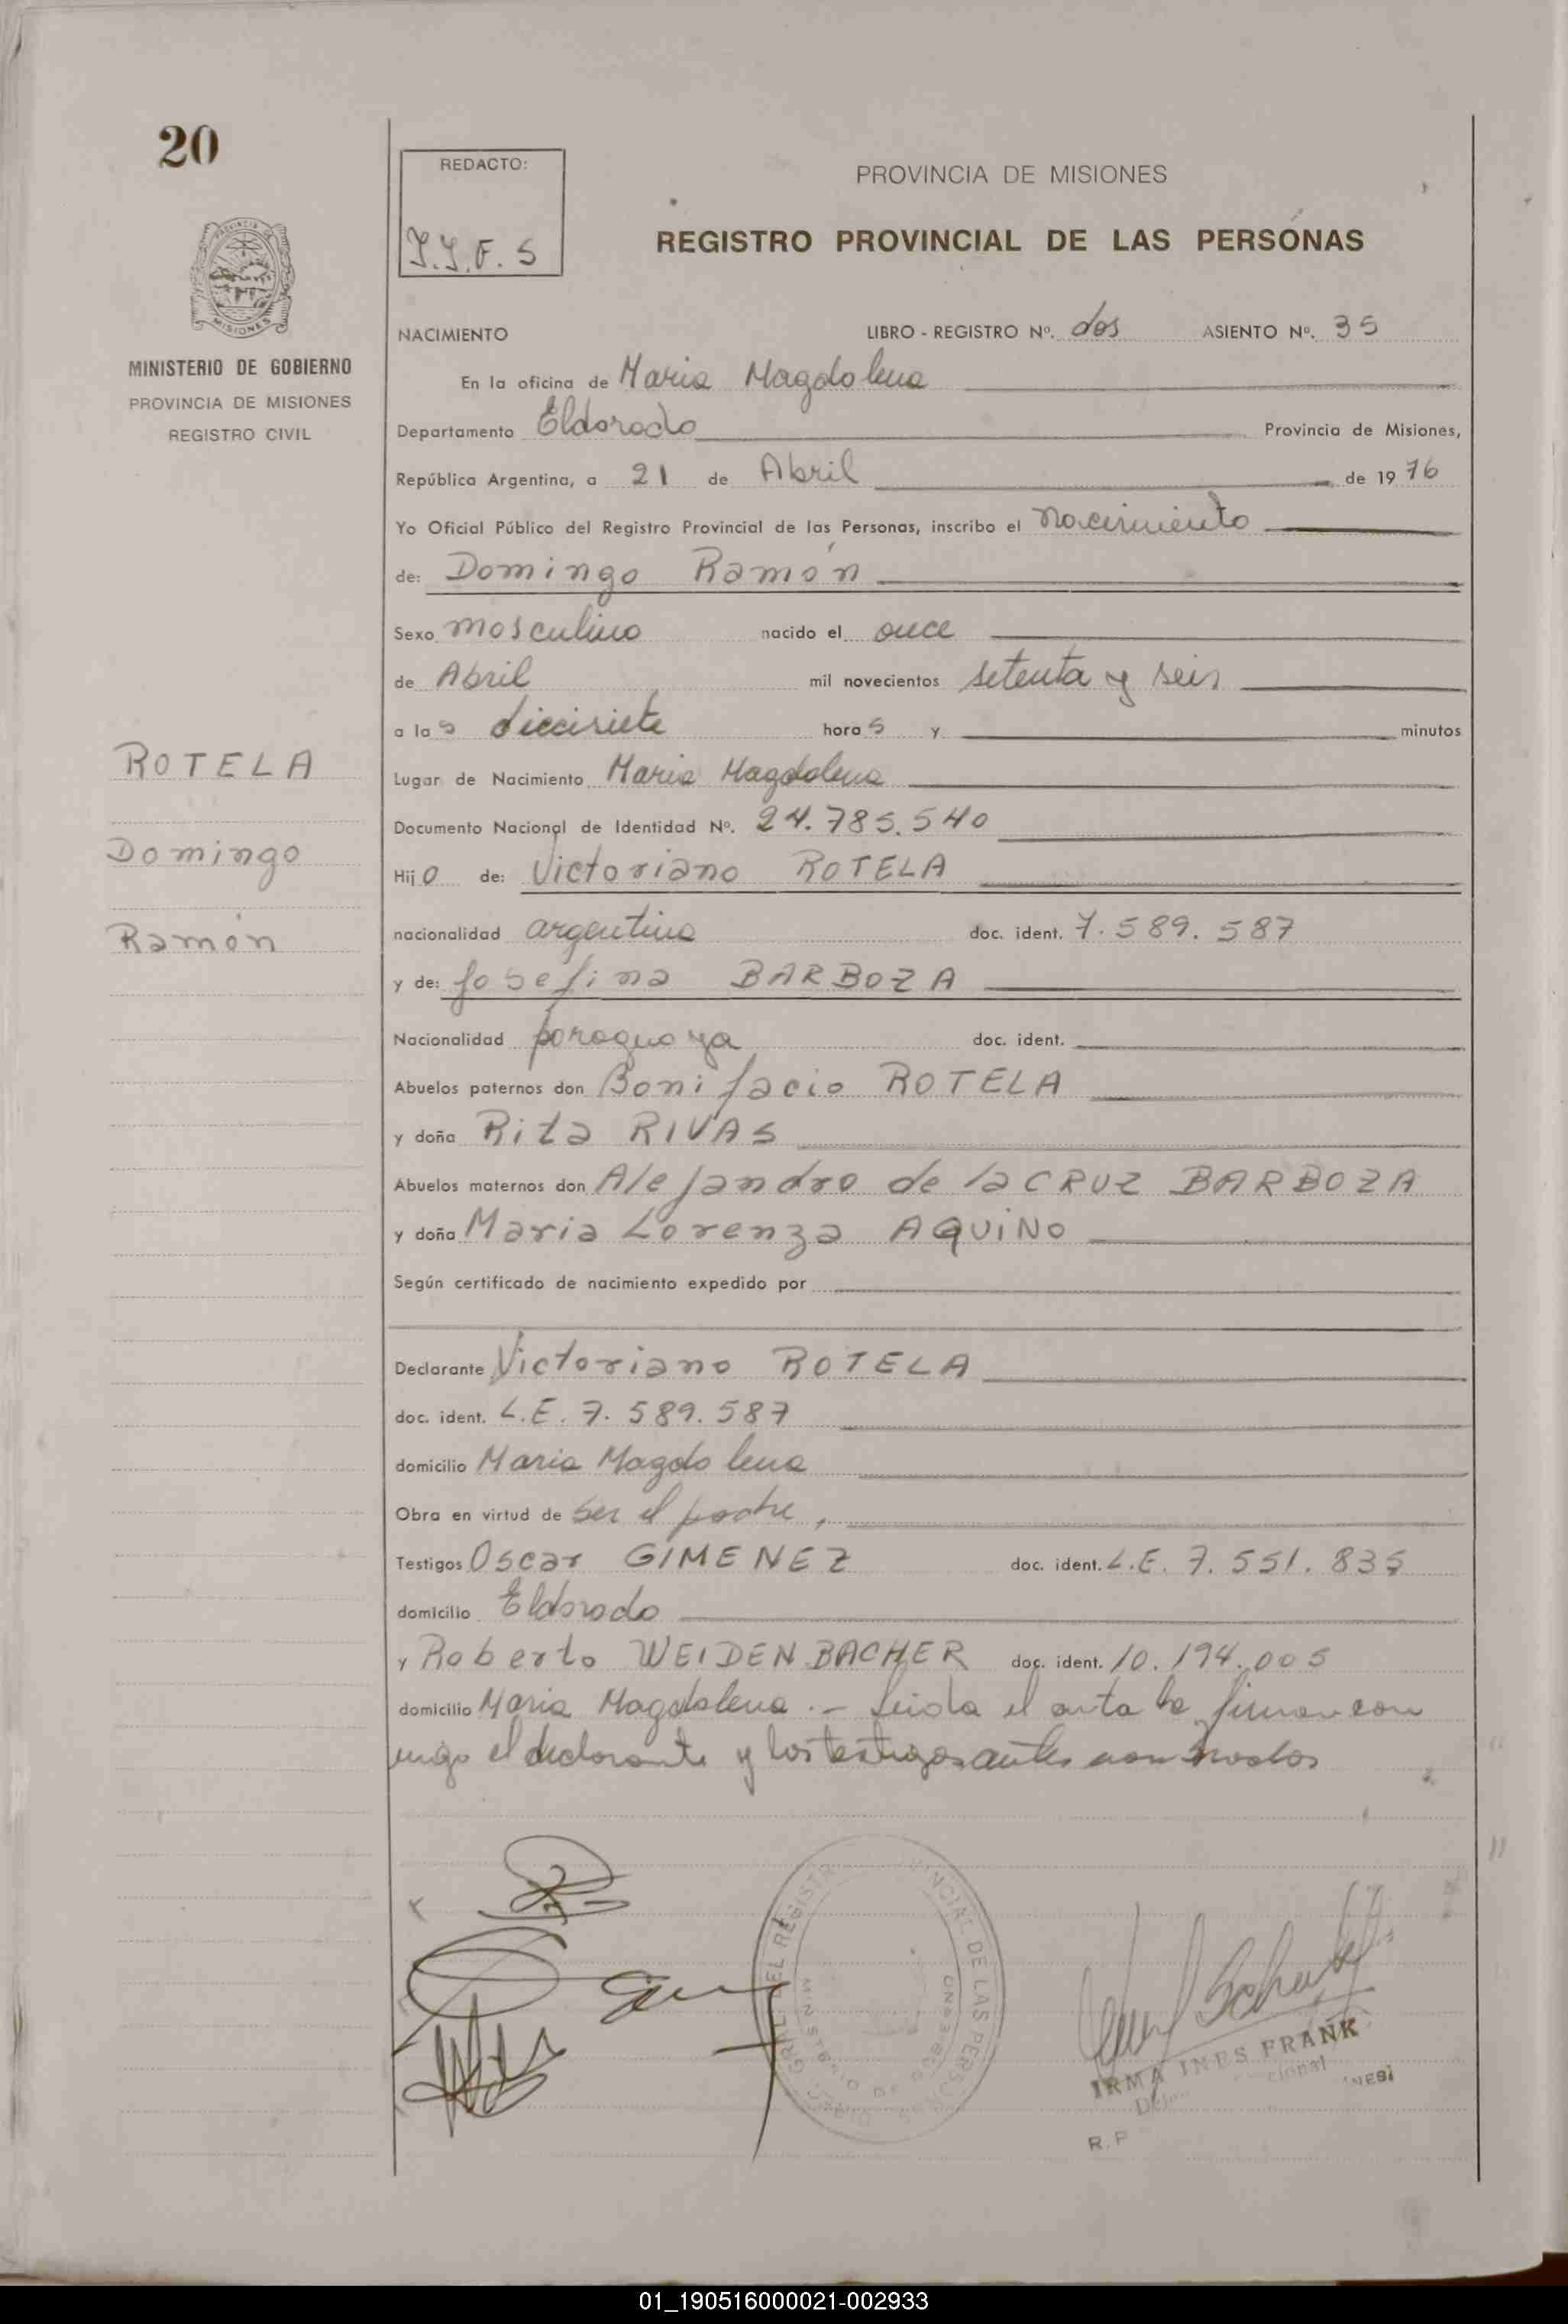 20
MINISTERIO DE GOBIERNO
PROVINCIA DE MISIONES
REGISTRO CIVIL
ROTELA
Domingo
Ramón
REDACTO:
PROVINCIA DE MISIONES
REGISTRO PROVINCIAL DE LAS PERSONAS
NACIMIENTO LIBRO - REGISTRO Nº. dos ASIENTO Nº. 35
En la oficina de Maria Magdalena
Departamento Eldorado Provincia de Misiones,
República Argentina, a 21 de Abril de 1976
Yo Oficial Público del Registro Provincial de las Personas, inscribo el nacimiento
de: Domingo Ramón
Sexo masculino nacido el once
de Abril mil novecientos setenta y seis
a las diecisiete horas y minutos
Lugar de Nacimiento Maria Magdalena
Documento Nacional de Identidad Nº. 24.785.540
Hijo de: Victoriano ROTELA
nacionalidad argentina doc. ident. 7.589.587
y de: Josefina BARBOZA
Nacionalidad paraguaya doc. ident.
Abuelos paternos don Bonifacio ROTELA
y doña Rita RIVAS
Abuelos maternos don Alejandro de la CRUZ BARBOZA
y doña Maria Lorenza AQUINO
Según certificado de nacimiento expedido por
Declarante Victoriano ROTELA
doc. ident. L.E. 7.589.587
domicilio Maria Magdalena
Obra en virtud de ser el padre,
Testigos Oscar GIMENEZ doc. ident. L.E. 7.551.835
domicilio Eldorado
y Roberto WEIDENBACHER doc. ident. 10.194.005
domicilio Maria Magdalena .- Leida el acta la firman con
migo el declarante y los testigos antes nombrados
IRMA INES FRANK
R. P
01_190516000021-002933